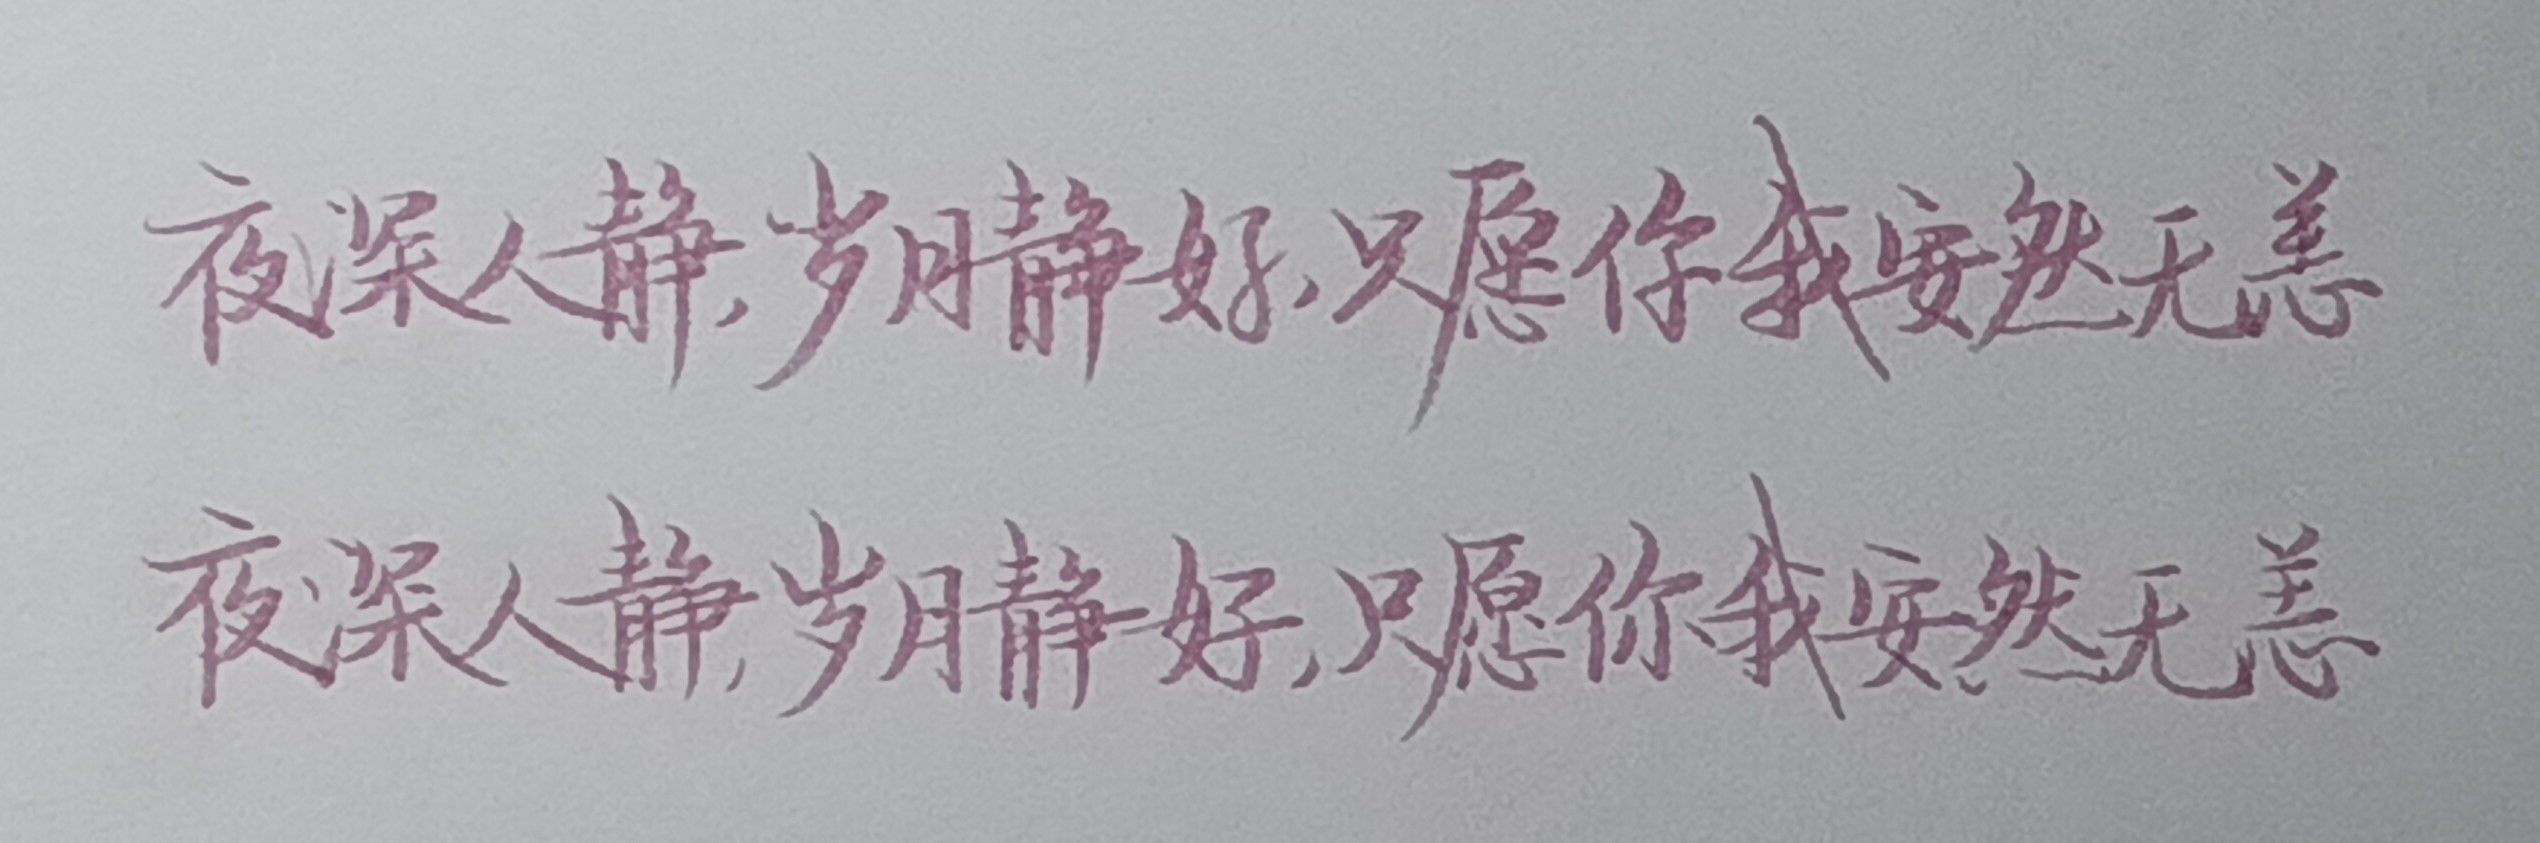 夜深人静,岁月静好,只愿你我安然无恙
夜深人静,岁月静好,只愿你我安然无恙